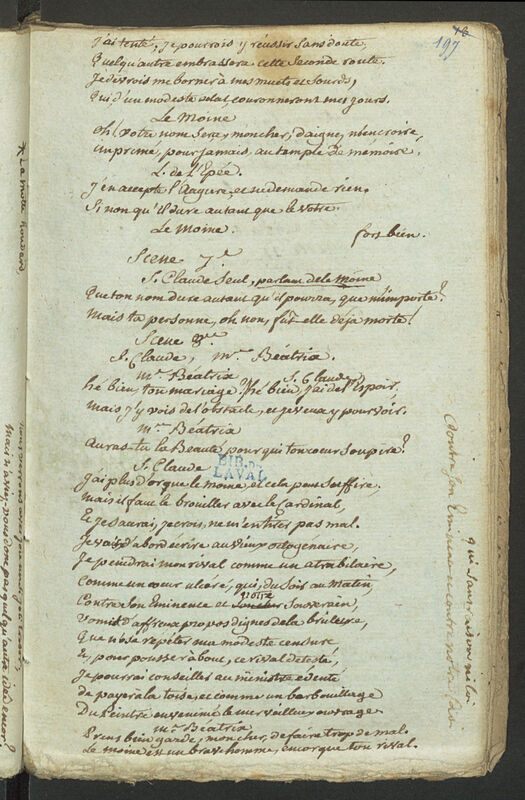 197
J'ai tenté, je pourrois y réussir sans doute,
Quelqu'autre embrassera cette seconde route.
Je devrois me borner à mes muets et sourds,
Qui d'un modeste éclat couronneront mes jours.
Le Moine
Oh! votre nom sera, mon cher, daignez m'en croire,
imprimé, pour jamais, au temple de mémoire.
L. de l'Epée.
J'en accepte l'Augure, et ne demande rien,
Si non qu'il dure autant que le vôtre.
Le Moine.
fort bien.
Scene 7.e
S. Claude Seul, parlant de le Moine
Que ton nom dure autant qu'il pourra, que m'importe?
Mais ta personne, oh non, fut elle déja morte!
Scene 8.e
S. Claude, M.me Béatrix.
M.me Béatrix
hé bien, ton mariage?
S. Claude
hé bien, j'ai de l'Espoir,
Mais j'y vois de l'obstacle, et je veux y pourvoir.
M.me Béatrix
Auras-tu la Beauté, pour qui ton coeur soupire?
S. Claude
J'ai plus d'or que le moine, et cela peut suffire,
Mais il faut le brouiller avec le Cardinal,
Et je saurai, je crois, ne m'en tirer pas mal.
Je vais d'abord écrire au vieux octogénaire,
Je peindrai mon rival comme un atrabilaire,
Comme un coeur ulcéré, qui, du Soir au Matin,
Contre Son Eminence et votre Souverain,
vomit d'affreux propos dignes de la brûlure,
Que n'ose répéter ma modeste censure
Et, pour pousser à bout, ce rival détesté,
Je pourrai conseiller au ministre
de payer à la toise, et comme un barbouillage
Du Peintre envenimé le merveilleux ouvrage.
M.me Béatrix
Prens bien garde, mon cher, de faire trop de mal.
Le moine est un brave homme, encor que ton rival.
BIB. DE
LAVAL
* La motte houdard
qui sans raison ni loi
Contre Son Eminence et contre notre
Mais n'aviez-vous donc pas quelqu'autre idée encor?